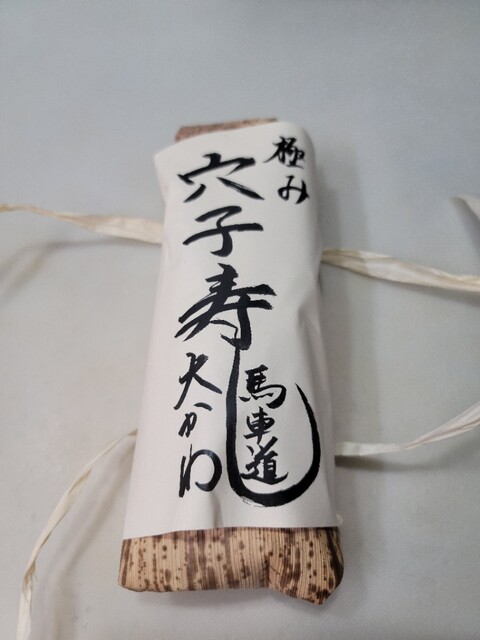 極み
穴子寿し
馬車道
大かわ